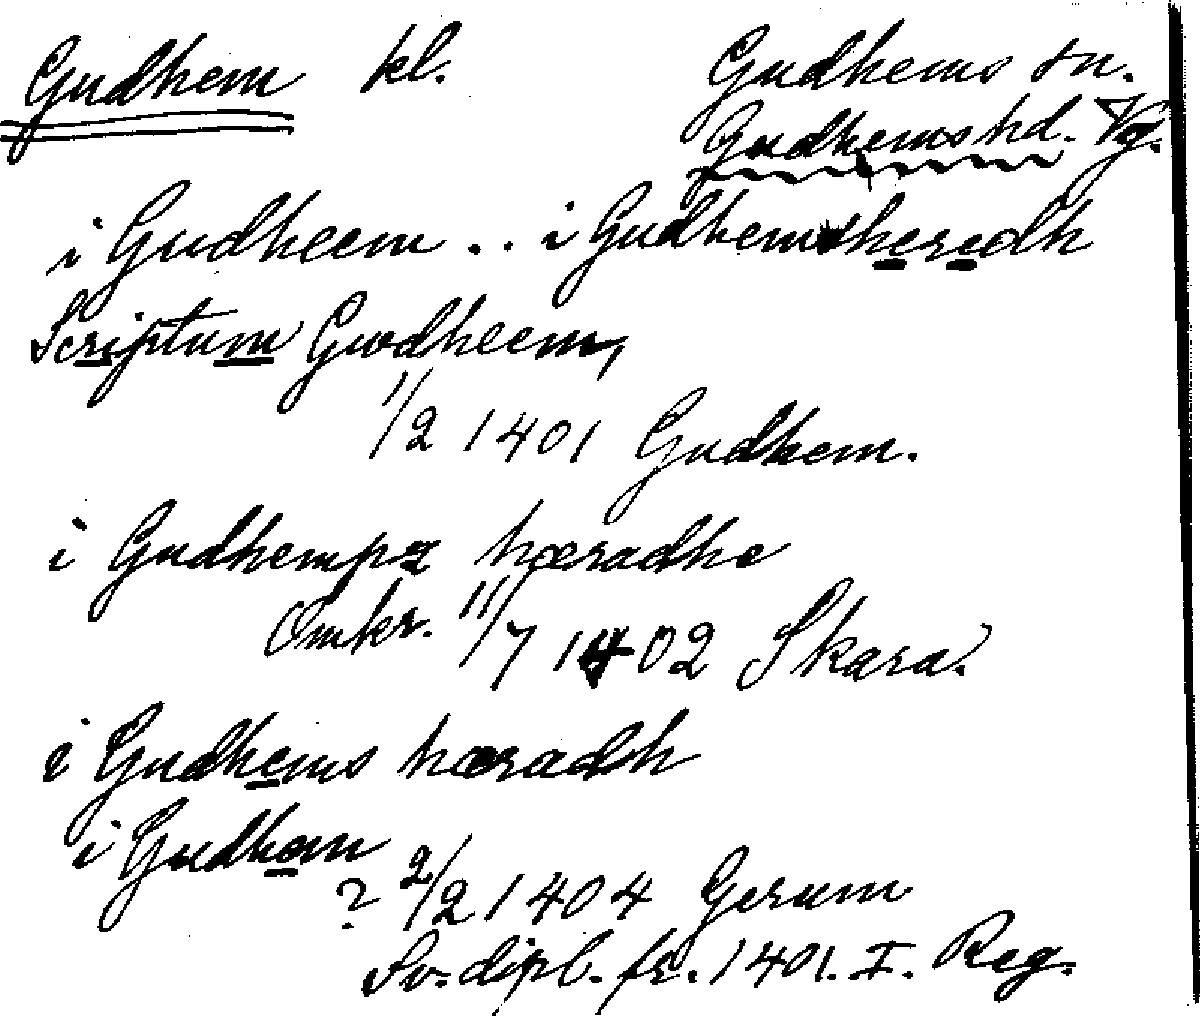 Gudhem kl. Gudhems sn.
Gudhems hd. Vg.
i Gudheem .. i Gudhemsheredh
Scriptum Gwdheem,
1/2 1401 Gudhem.
i Gudhempæ hæradhe
Omkr. 11/7 1402 Skara.
i Gudhems hæradh
i Gudhem
? 2/2 1404 Gerum
Sv. dipl. fr. 1401. I. Reg.